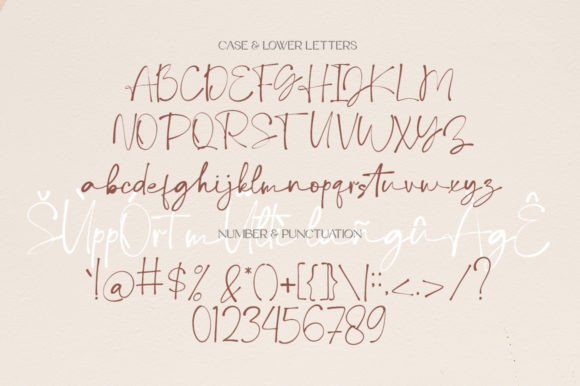 CASE & LOWER LETTERS
ABCDEFGHIJKLM
NOPQRSTUVWXYZ
abcdefghijklmnopqrstuvwxyz
ŠÙppÓrt mÚltì luñgûÄgÊ
NUMBER & PUNCTUATION
'!@#$% &*()+[{]}\|:;,<.>/?
0123456789